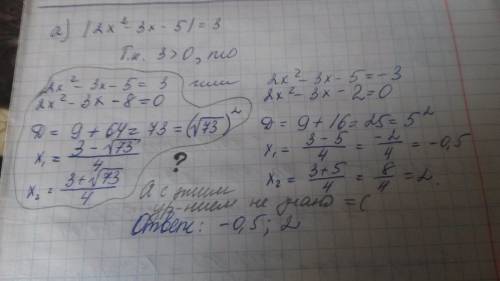 а) |2x² - 3x - 5| = 3
Т.к. 3>0, то
2x² - 3x - 5 = 3 или
2x² - 3x - 8 = 0
D = 9 + 64 = 73 = (√73)²
x₁ = (3 - √73)/4
x₂ = (3 + √73)/4
?
2x² - 3x - 5 = -3
2x² - 3x - 2 = 0
D = 9 + 16 = 25 = 5²
x₁ = (3 - 5)/4 = -2/4 = -0,5
x₂ = (3+5)/4 = 8/4 = 2.
А с этим
ур-нием не знаю =(
Ответ: -0,5; 2